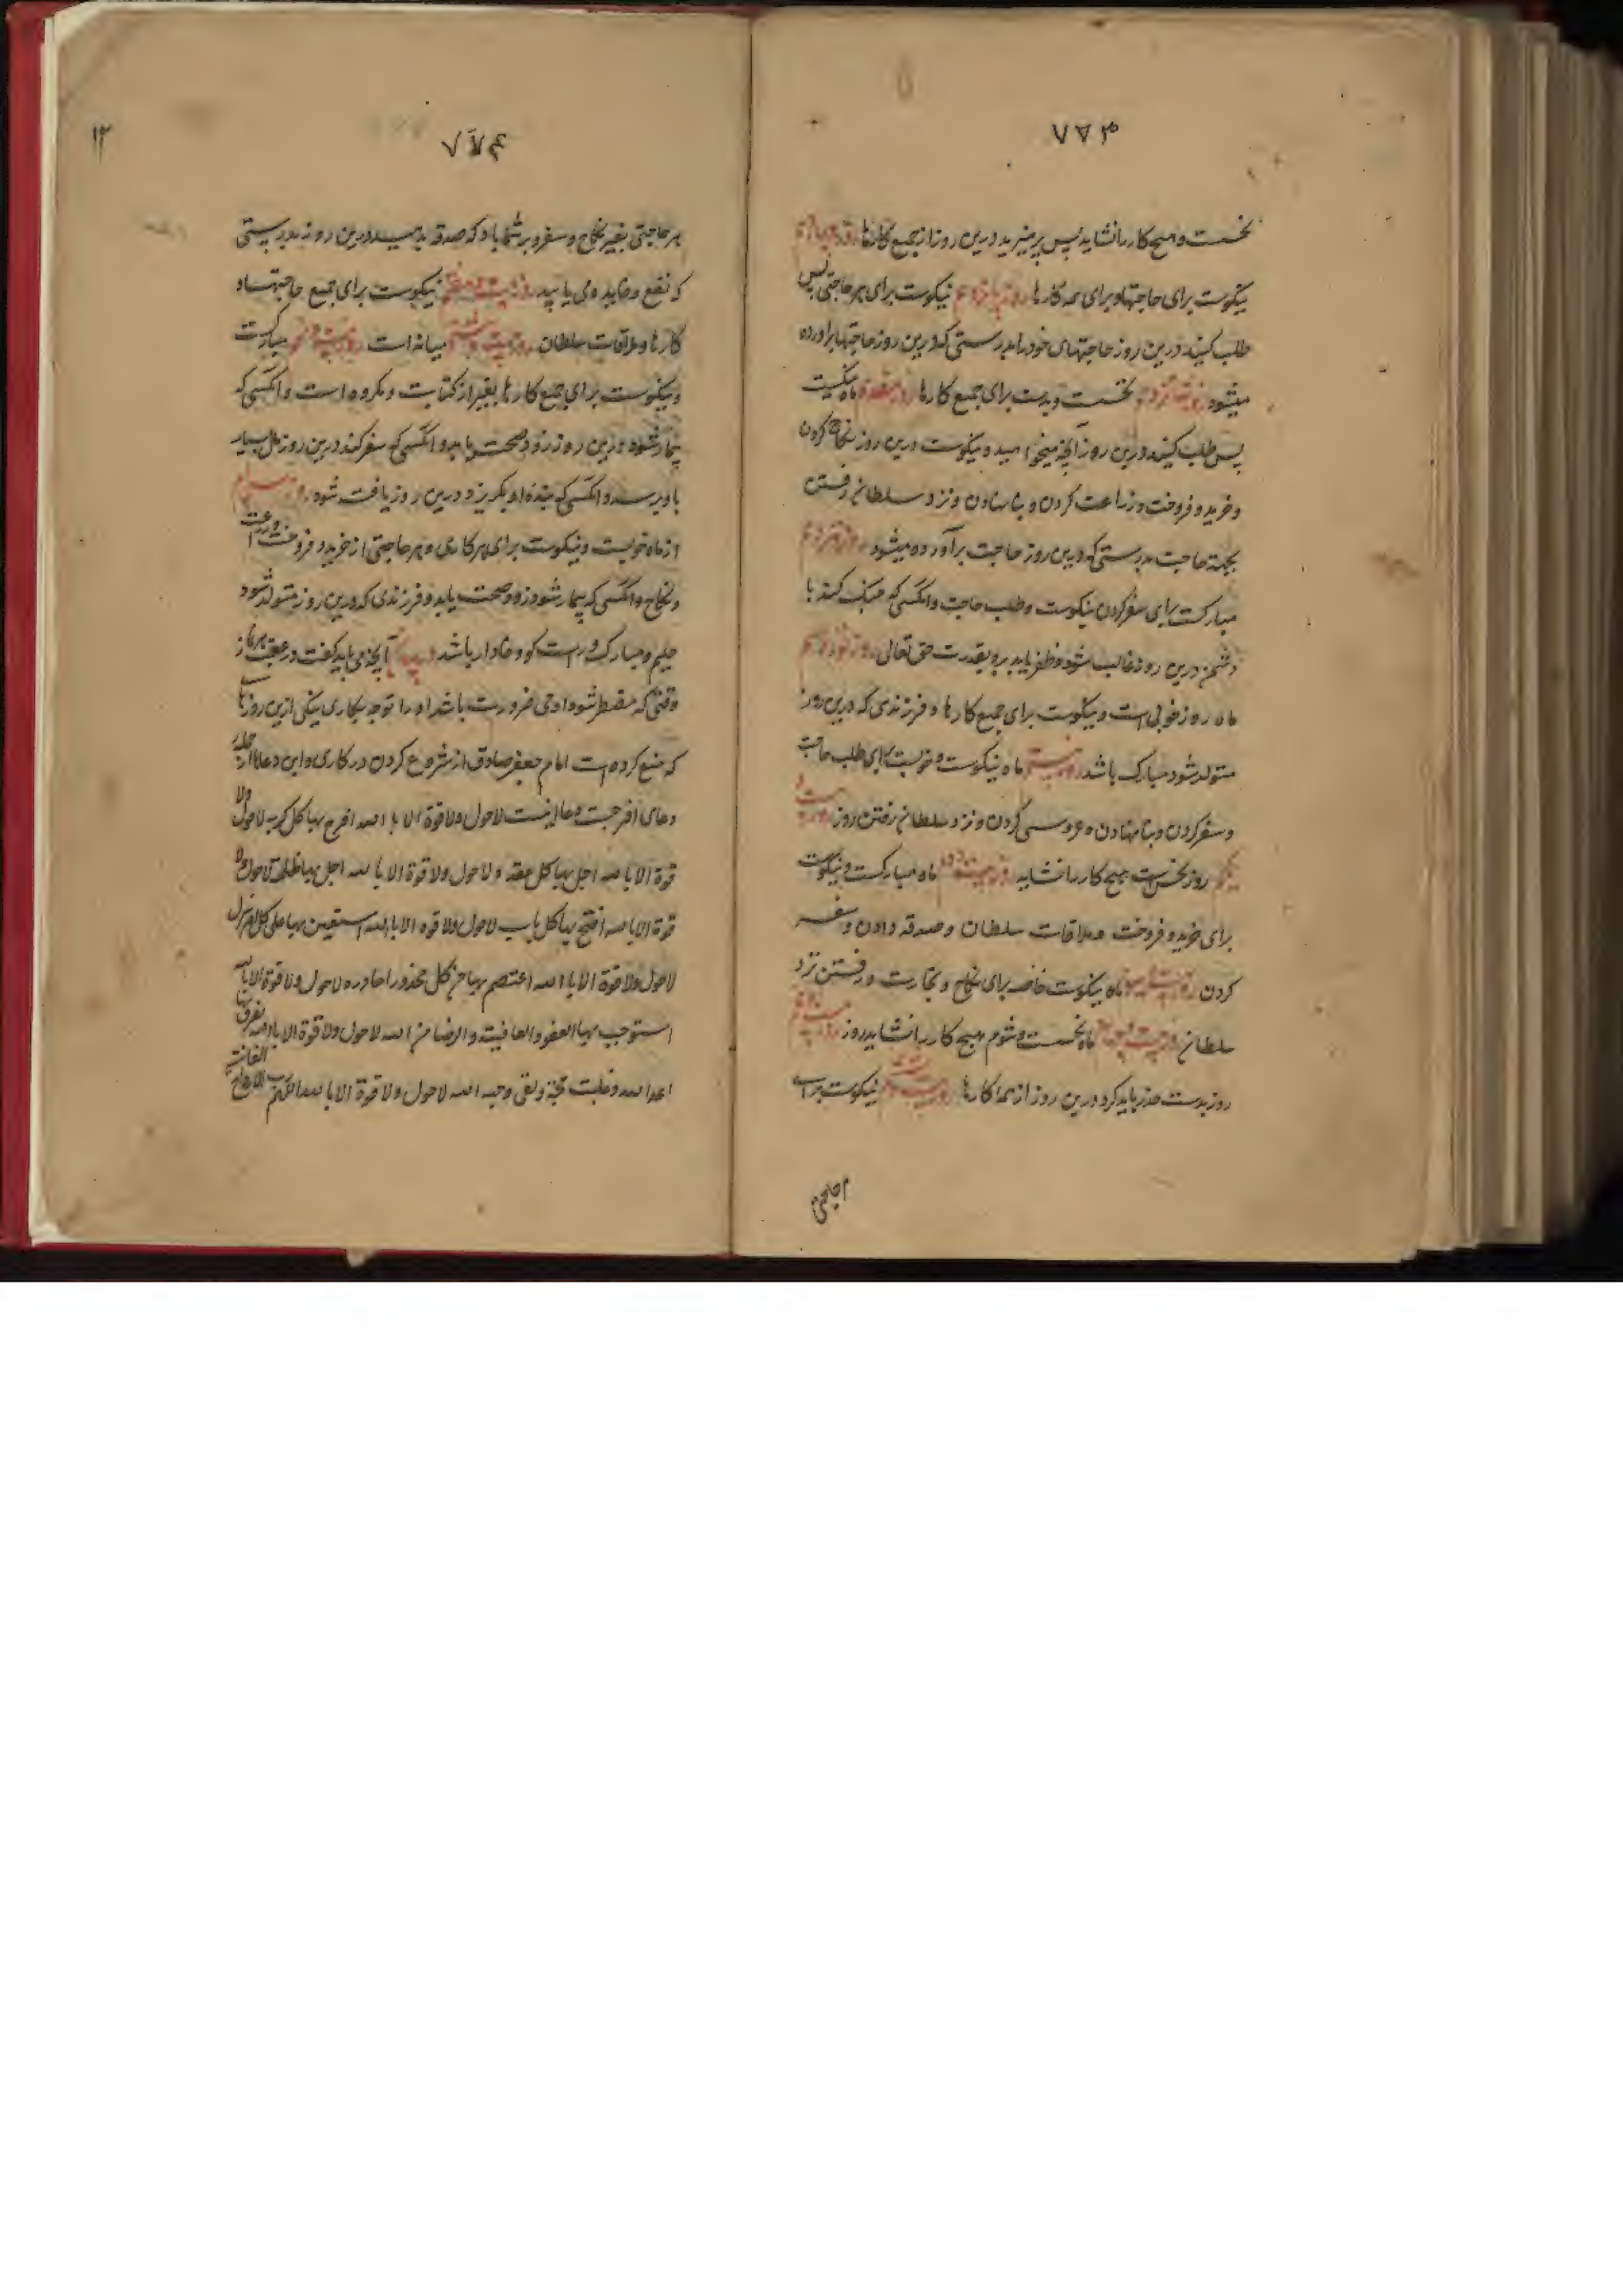 ۷۷۳
نحست و هیچ کار را نشاید پس پرهیزید درین روز از جمیع کارها روز چهاردهم
نیکوست برای حاجتها و برای همه کارها روز پانزدهم نیکوست برای هر حاجتی پس
طلب کنید درین روز حاجتهای خود را بدرستی که درین روز حاجتها برآورده
میشود روز شانزدهم نحست و بدست برای جمیع کارها روز هفدهم ماه نیکست
پس طلب کنید درین روز آنچه میخواهید و نیکوست درین روز نکاح کردن
و خرید و فروخت و زراعت کردن و بنا نهادن و نزد سلطان رفتن
بجهة حاجت بدرستی که درین روز حاجت برآورده میشود روز هژدهم
مبارکست برای سفر کردن نیکوست و طلب حاجت و آنکسی که جنک کند با
دشمن درین روز غالب شود و ظفر یابد برو بقدرت حق تعالی روز نوزدهم
ماه روز خوبی است و نیکوست برای جمیع کارها و فرزندی که درین روز
متولد شود مبارک باشد روز بیستم ماه نیکوست و خوبست برای طلب حاجت
و سفر کردن و بنا نهادن و عروسی کردن و نزد سلطان رفتن روز بیست و
یکم روز نحس است هیچ کار را نشاید روز بیست و دوم ماه مبارکست و نیکوست
برای خرید و فروخت و ملاقات سلطان و صدقه دادن و سفر
کردن روز بیست و سیوم ماه نیکوست خاصه برای نکاح و تجارت و رفتن نزد
سلطان روز بیست و چهارم ماه نحست و شوم هیچ کار را نشاید روز بیست و پنجم
روز بدست حذر باید کرد درین روز از همه کارها روز بیست و ششم نیکوست برای
۷۷۴
۱۲
هر حاجتی بغیر نکاح و سفر و بر شما باد که صدقه بدهید درین روز بدرستی
که نفع و فایده می یابید روز بیست و هفتم نیکوست برای جمیع حاجتها و
کارها و ملاقات سلطان روز بیست و هشتم میانه است روز بیست و نهم مبارکست
و نیکوست برای جمیع کارها بغیر از کتابت و مکروه است و آنکسی که
بیمار شود درین روز زود صحت یابد و آنکسی که سفر کند درین روز مال بسیار
باو برسد و آنکسی که بنده او بگریزد درین روز یافت شود روز سی ام
از ماه خوبست و نیکوست برای هر کاری و هر حاجتی از خرید و فروخت و زراعت
و نکاح و آنکسی که بیمار شود زود صحت یابد و فرزندی که درین روز متولد شود
حلیم و مبارک و راست کو و وفادار باشد آنچه می باید کفت در عقب هر نماز
وقتی که مضطر شود آدمی ضرورت باشد او را توجه بکاری بیکی ازین روزهای
که منع کرده است امام جعفر صادق از شروع کردن در کاری و این دعا از جمله
دعای افرجست دعا اینست لاحول ولا قوة الا بالله افرج بها کل کربه لاحول ولا
قوة الا بالله احل بها کل عقد ولاحول ولا قوة الا بالله اجل بها ظلمة لاحول ولا
قوة الا بالله افتح بها کل باب لاحول ولا قوة الا بالله استعین بها علی کل
لاحول ولا قوة الا بالله اعتصم بها من کل محذور احاذره لاحول ولا قوة الا بالله
استوجب بها العفو والعافیة والرضا من الله لاحول ولا قوة الا بالله تفرق بها
اعدا الله وغلبت حجة وبقی وجه الله لاحول ولا قوة الا بالله